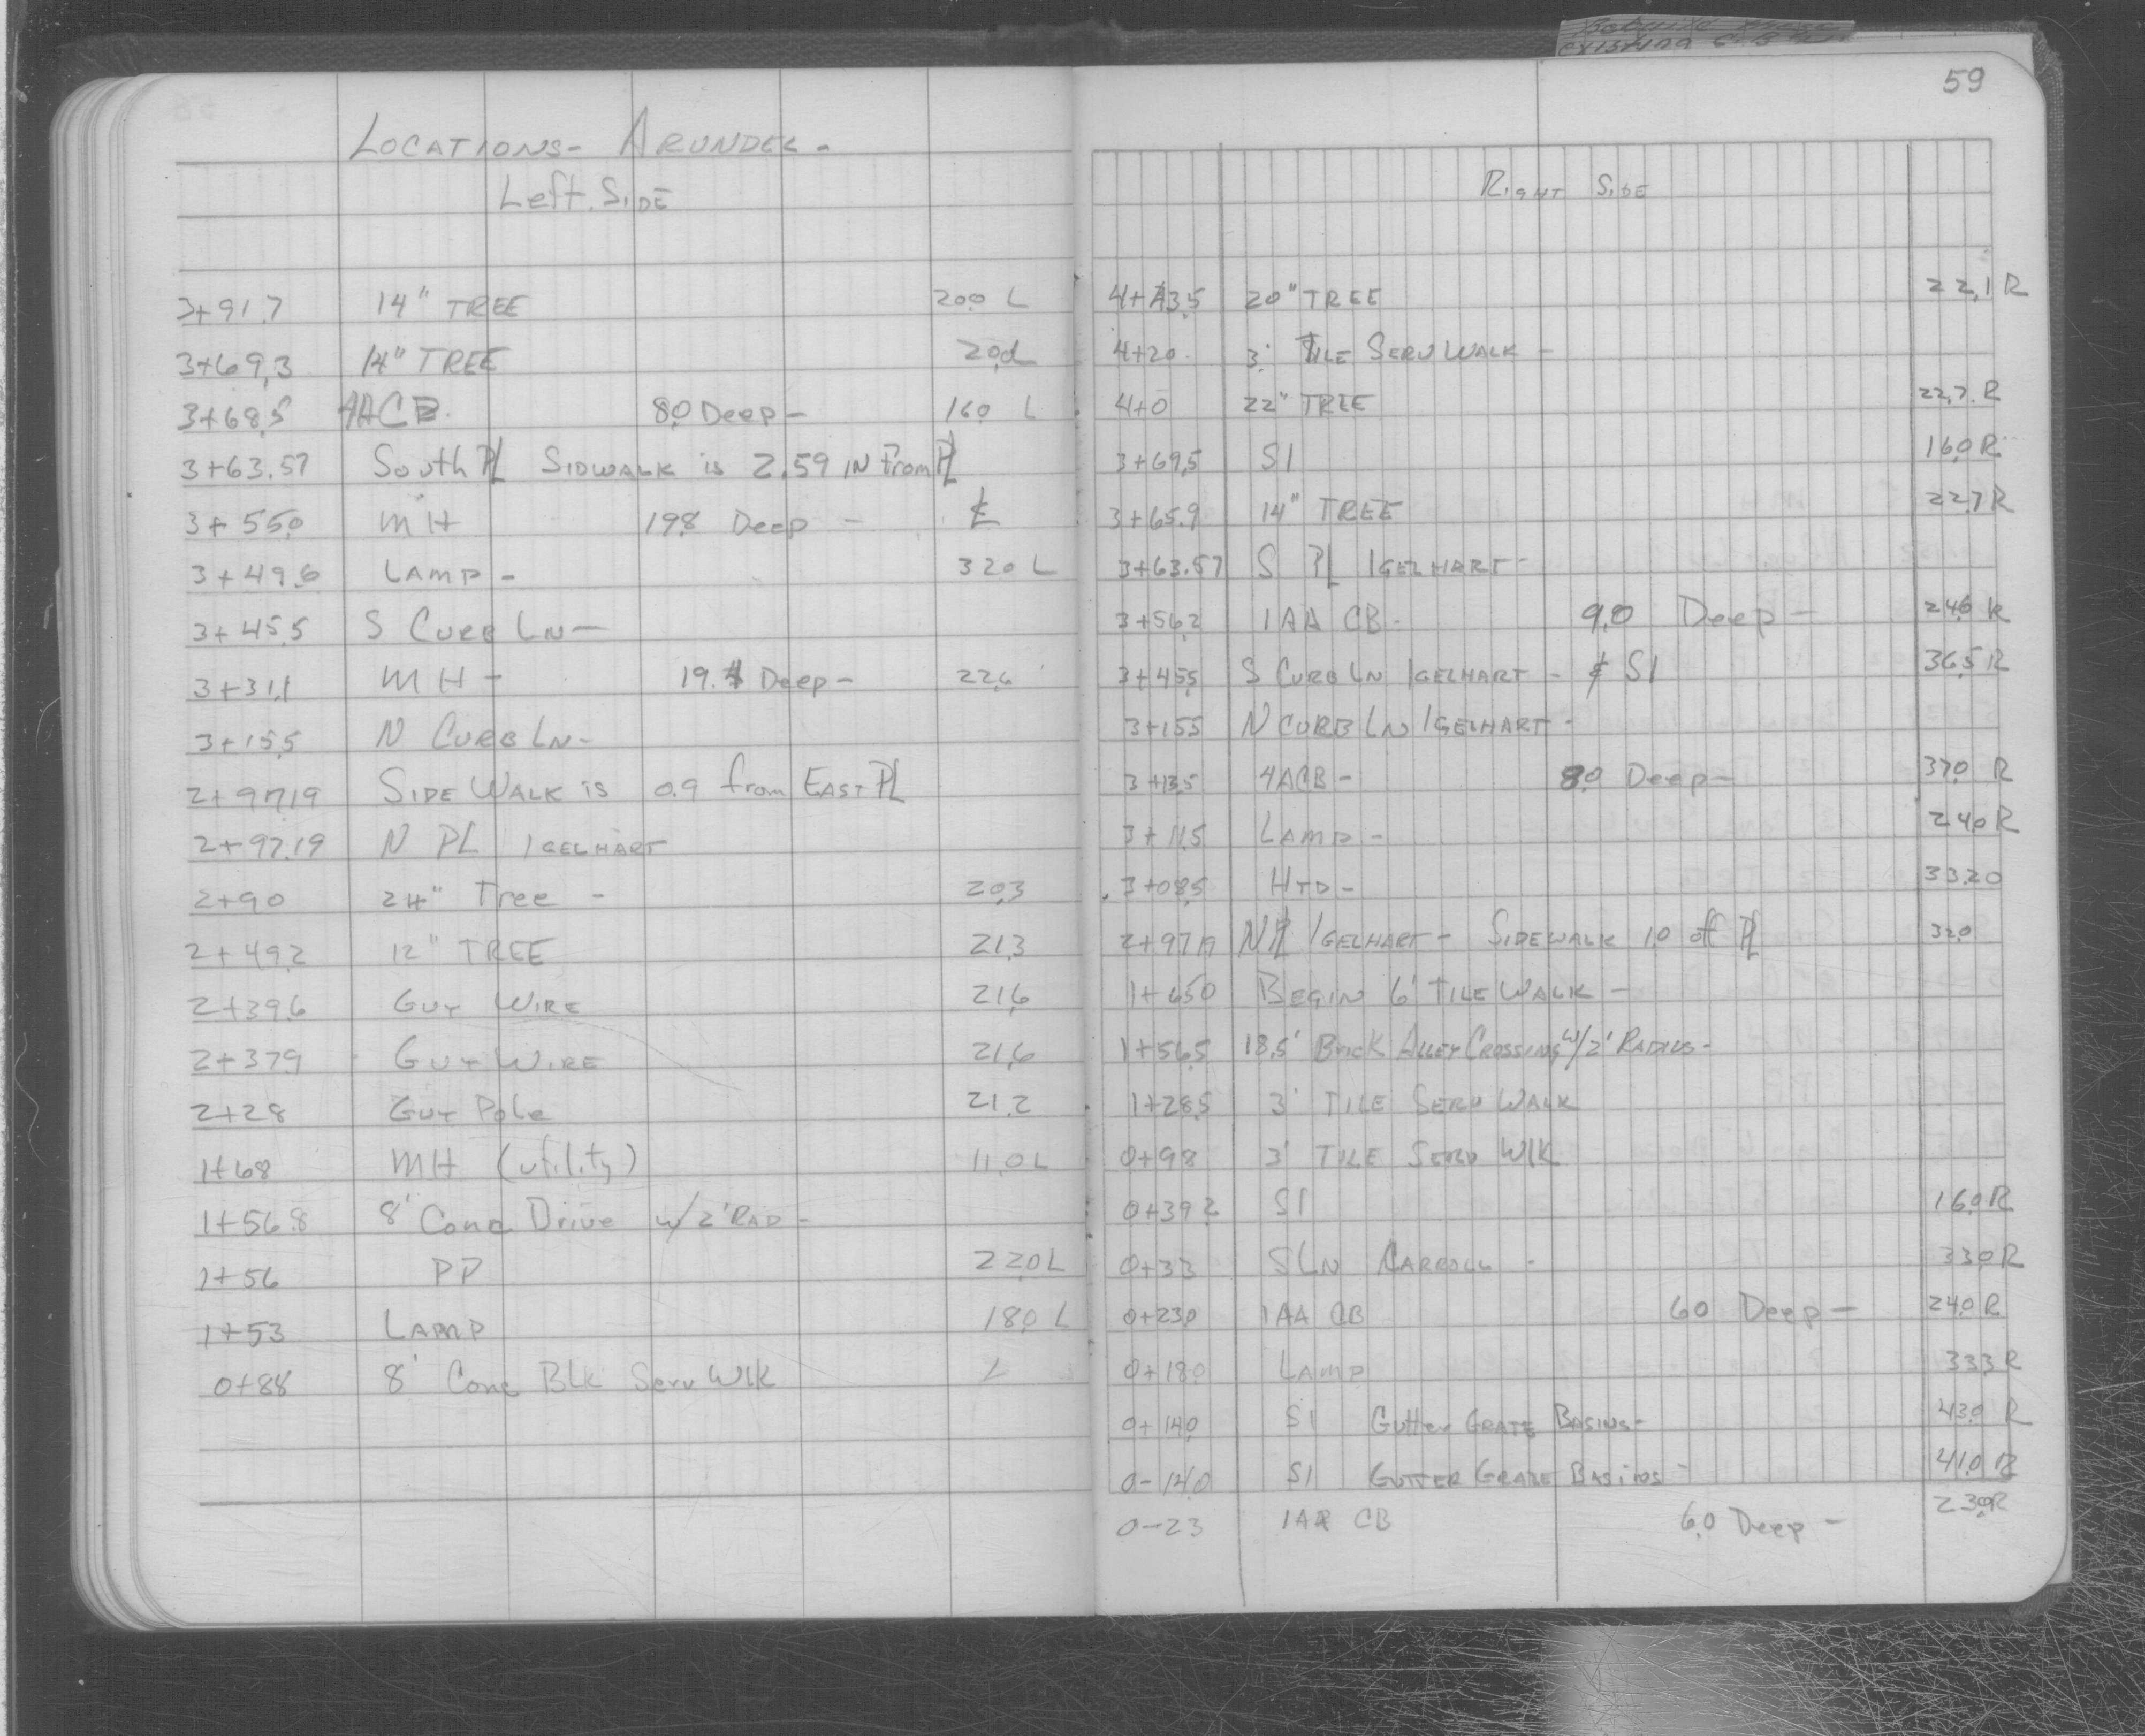 existing C.B.
59
LOCATIONS - ARUNDEL -
Left SIDE
3+91.7 14" TREE 20.0 L
3+69.3 14" TREE 20.0 L
3+68.5 4ACB. 8.0 Deep - 16.0 L
3+63.57 South PL SIDWALK is 2.59 IN From PL
3+55.0 MH 19.8 Deep - ℄
3+49.6 LAMP - 32.0 L
3+45.5 S CURB LN -
3+31.1 MH - 19.4 Deep - 22.6
3+15.5 N CURB LN -
2+97.19 SIDE WALK is 0.9 from EAST PL
2+97.19 N PL IGELHART
2+90 24" Tree - 20.3
2+49.2 12" TREE 21.3
2+39.6 GUY WIRE 21.6
2+37.9 GUY WIRE 21.6
2+28 GUY Pole 21.2
1+68 MH (utility) 11.0 L
1+56.8 8' Conc Drive w/ 2' RAD -
1+56 PP 22.0 L
1+53 LAMP 18.0 L
0+88 8' Conc Blk Serv WLK L
RIGHT SIDE
4+43.5 20" TREE 22.1 R
4+20. 3' TILE SERV WALK -
4+0 22" TREE 22.7. R
3+69.5 S1 16.0 R
3+65.9 14" TREE 22.7 R
3+63.57 S PL IGELHART -
3+56.2 1AA CB - 9.0 Deep - 24.6 R
3+45.5 S CURB LN IGELHART - ¢ S1 36.5 R
3+15.5 N CURB LN IGELHART -
3+13.5 4ACB - 8.0 Deep - 37.0 R
3+11.5 LAMP - 24.0 R
3+08.5 HYD - 33.20
2+97.19 N PL IGELHART - SIDEWALK 1.0 off PL 32.0
1+65.0 BEGIN 6' TILE WALK -
1+56.5 18.5' Brick ALLEY CROSSING w/ 2' RADIUS -
1+28.5 3' TILE SERV WALK
0+98 3' TILE SERV WLK
0+39.2 S1 16.0 R
0+33 S LN CARROLL - 33.0 R
0+23.0 1AA CB 6.0 Deep - 24.0 R
0+18.0 LAMP 33.3 R
0+14.0 S1 Gutter GRATE BASINS - 43.0 R
0-14.0 S1 GUTTER GRATE BASINS - 41.0 R
0-23 1AA CB 6.0 Deep - 23.0 R